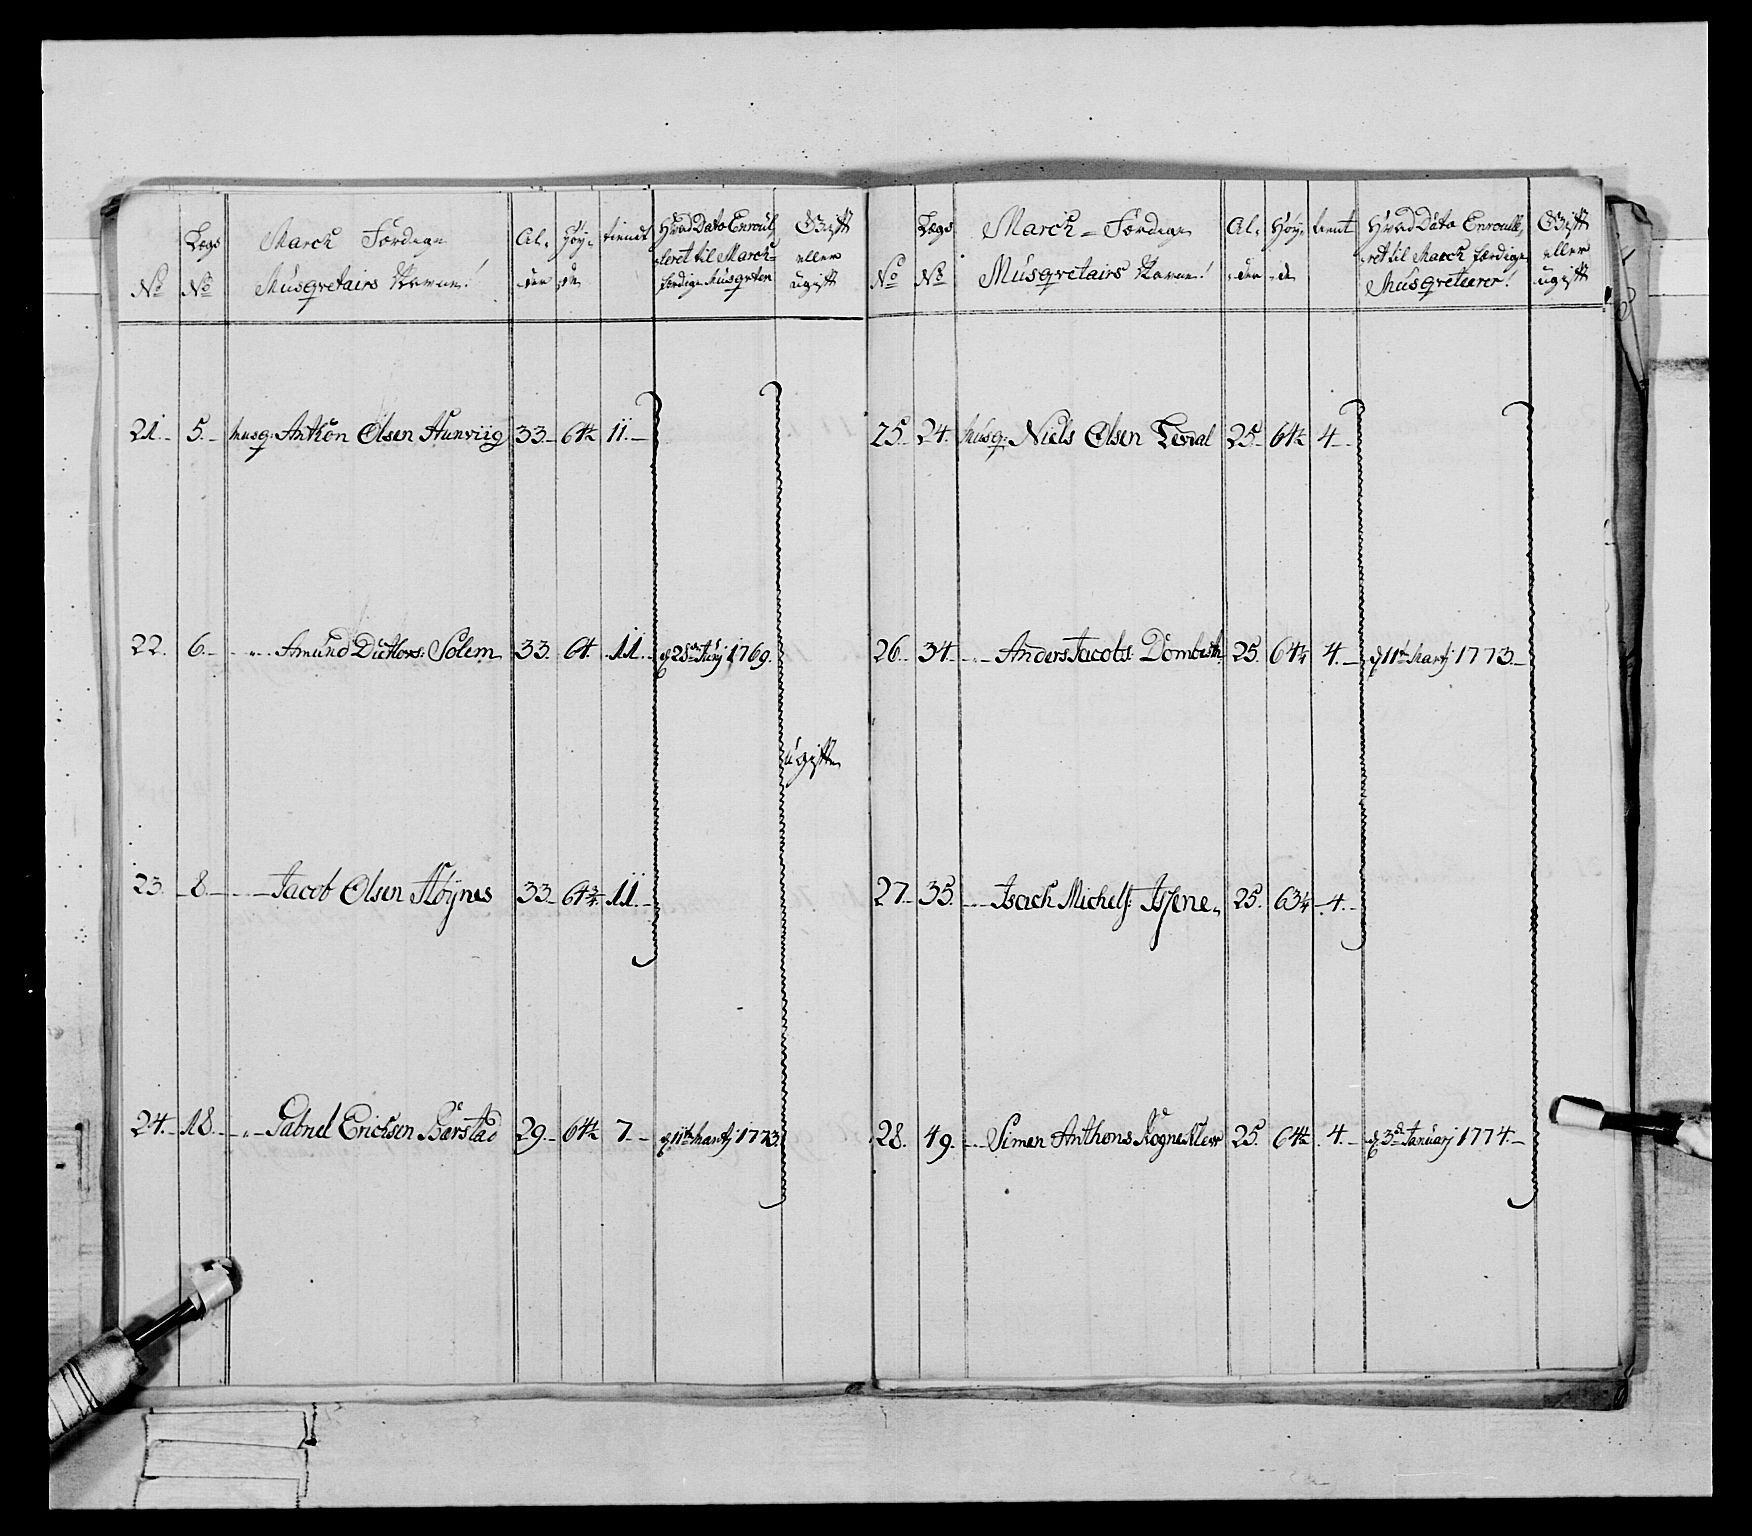 No Lægs No March Færdige Musqvetairs Navne! Al-der Høy-de tient Hvad Dato Enroulleret til March-færdige Musqveten Gift eller ugift
21. 5. Musq: Anthon Olsen Hunviig 33. 64½ 11.
22. 6. Amund Ditlevs: Solem 33. 64. 11. d. 28de Juny 1769.
ugifte
23. 8. Jacob Olsen Høynes 33. 64¾ 11.
24. 18. Gabriel Erichsen Barstad 29. 64½ 7. d. 11te Marty 1773.
No Lægs No March-Færdige Musqvetairs Navne! Al-der Høy-de tient Hvad Dato Enroulleret til March færdige Musqveterer! Gift eller ugift
25. 24. Musq: Niels Olsen 25. 64½ 4.
26. 34. Anders Jacobs: 25. 64¼ 4. d. 11te Marty 1773.
27. 35. Isach Michels: 25. 63¼ 4.
28. 49. Simen Anthons 25. 64½ 4. d. 3de January 1774.